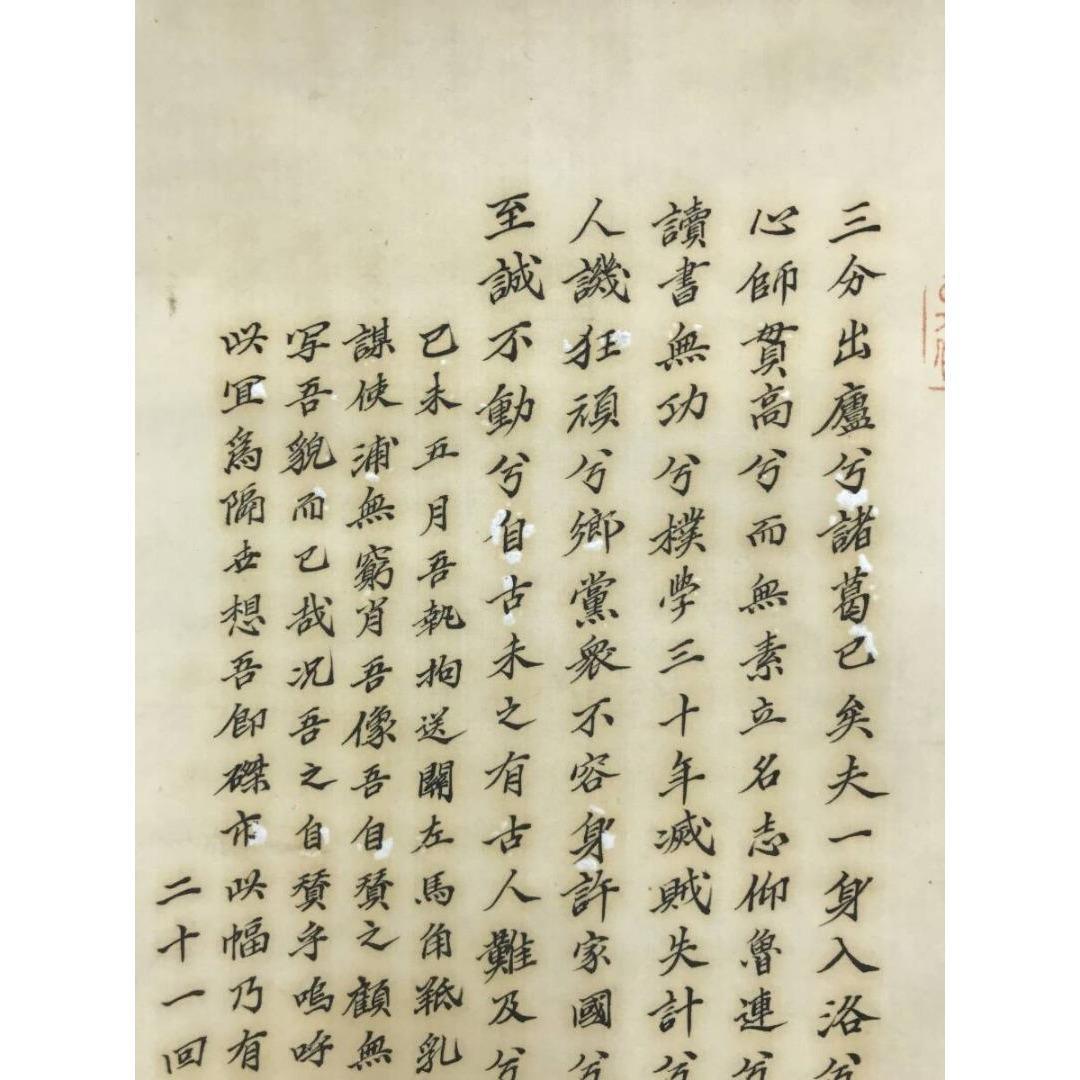 三分出廬兮諸葛已矣夫一身入洛兮
心師貫高兮而無素立名志仰魯連兮
讀書無功兮樸學三十年滅賊失計兮
人譏狂頑兮鄉黨衆不容身許家國兮
至誠不動兮自古未之有古人難及兮
己未五月吾執拘送關左馬角羝乳
謀使浦無窮肖吾像吾自賛之顧無
写吾貌而已哉况吾之自賛乎嗚呼
此宜為隔世想吾即磔市此幅乃有
二十一回